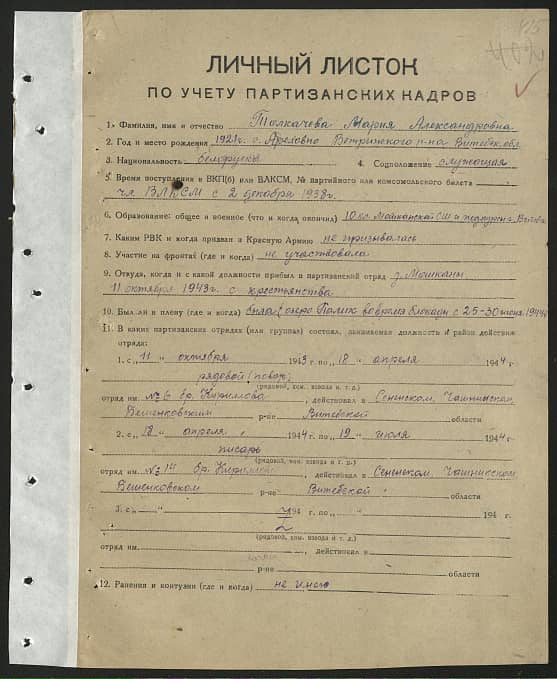 415
ЛИЧНЫЙ ЛИСТОК
ПО УЧЕТУ ПАРТИЗАНСКИХ КАДРОВ
1. Фамилия, имя и отчество Толкачева Мария Александровна
2. Год и место рождения 1921 г. с. Ореховно Ветринского р-на Витебск. обл.
3. Национальность белоруска 4. Соцположение служащая
5. Время поступления в ВКП(б) или ВЛКСМ, № партийного или комсомольского билета
чл. ВЛКСМ с 2 декабря 1938 г.
6. Образование: общее и военное (что и когда окончил) 10 кл. СШ и педкурсы
7. Каким РВК и когда призван в Красную Армию не призывалась
8. Участие на фронтах (где и когда) не участвовала
9. Откуда, когда и с какой должности прибыл в партизанский отряд д.
11 октября 1943 г. с крестьянства
10. Был ли в плену (где и когда) была озеро Палик во время блокады с 25-30 июня 1944 г.
11. В каких партизанских отрядах (или группах) состоял, занимаемая должность и район действия
отряда:
1. с „ 11 " октября 1943 г. по „ 18 " апреля 1944 г.
рядовой (повар)
(рядовой, ком. взвода и т. д.)
отряд им. № 6 бр. Кириллова, действовал в Сенненском, Чашникском,
Бешенковском р-не Витебской области
2. с „ 18 " апреля 1944 г. по „ 19 " июля 1944 г.
писарь
(рядовой, ком. взвода и т. д.)
отряд им. № 14 бр. Кириллова, действовал в Сенненском Чашникском
Бешенковском р-не Витебской области
3. с „ " 194 г. по „ " 194 г.
(рядовой, ком. взвода и т. д.)
отряд им. , действовал в
р-не области
12. Ранения и контузии (где и когда) не имею